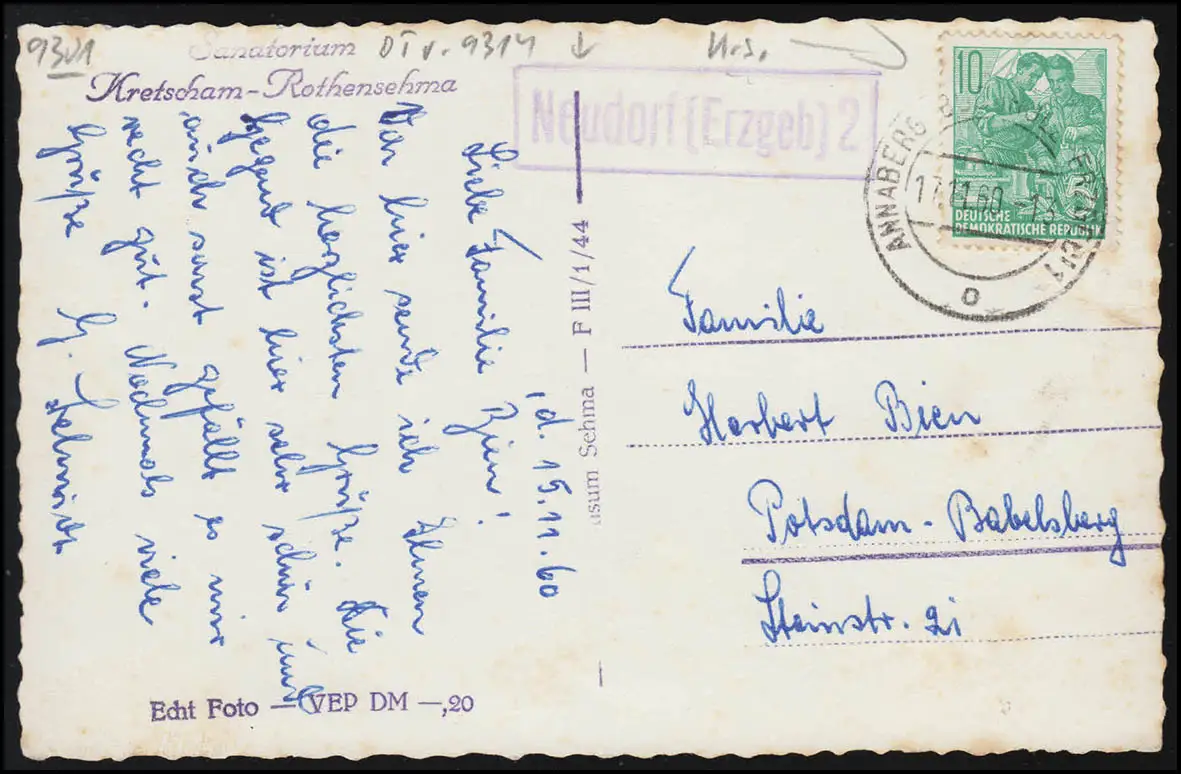 9301
DT v. 9314
U.s.
Sanatorium
Kretscham-Rothensehma
Neudorf (Erzgeb) 2
10
DEUTSCHE
DEMOKRATISCHE REPUBLIK
ANNABERG
17.11.60
, d. 15.11.60
Liebe Familie Bien!
Von hier sende ich Ihnen
die herzlichsten Grüße. Die
Gegend ist hier sehr schön und
auch sonst gefällt es mir
recht gut. Nochmals viele
Grüße G.
usum Sehma — F III/1/44
Familie
Herbert Bien
Potsdam-Babelsberg
Steinstr. 2i
Echt Foto — VEP DM —,20